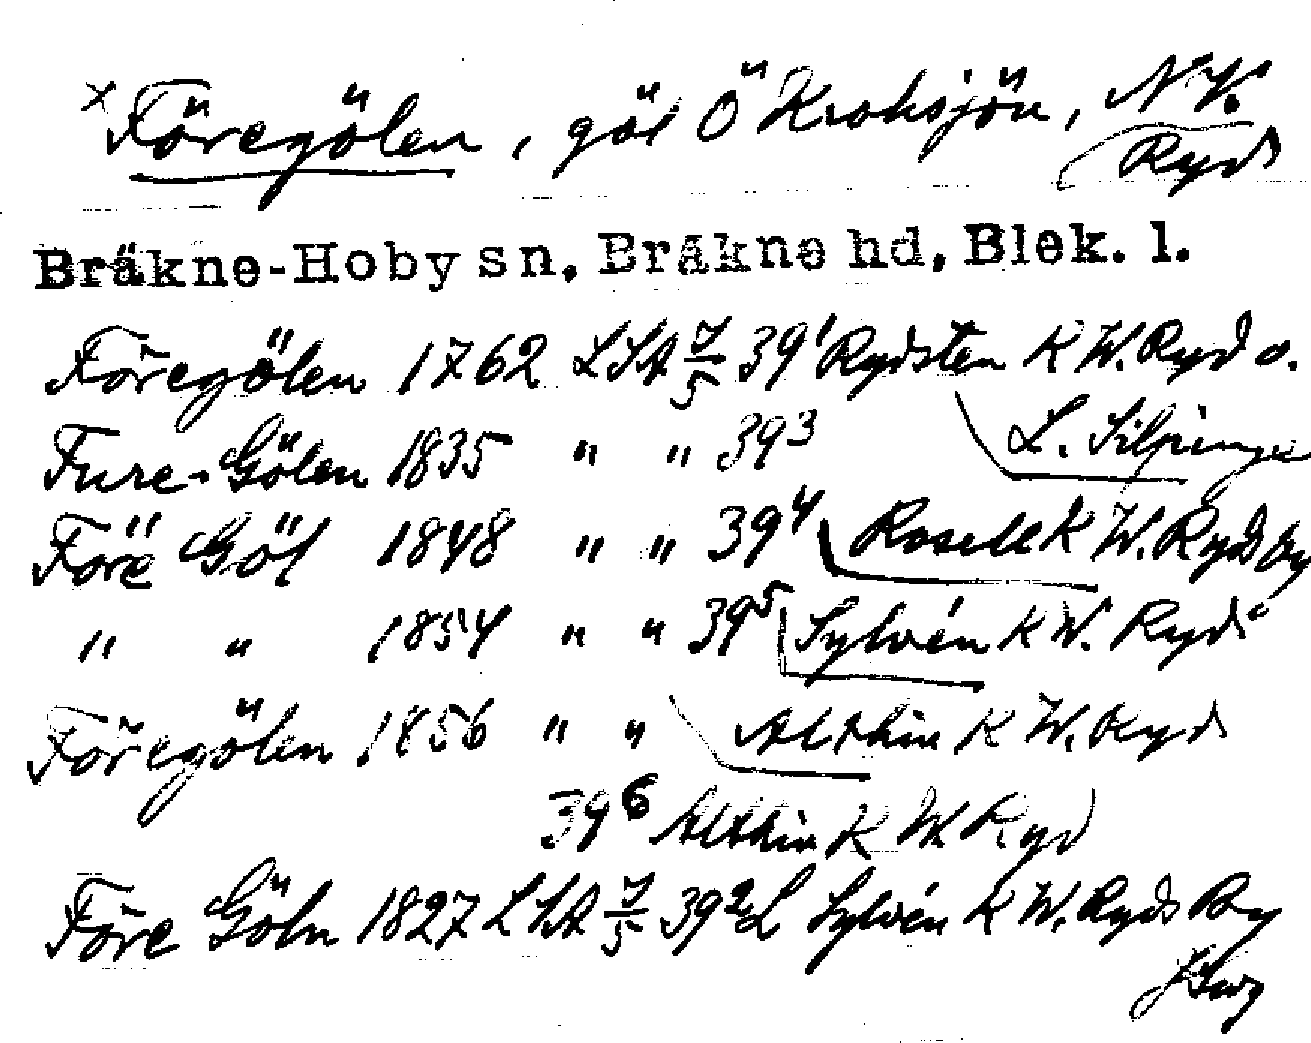 × Föregölen, göl Ö Kroksjön, N V.
Ryd
Bräkne-Hoby sn, Bräkne hd, Blek. l.
Föregölen 1762 LSA 7/5 39¹ Rydsten K W. Ryd o.
L. Silpinge
Fure-Gölen 1835 " " 39³
Före Göl 1848 " " 39⁴ Rosell K W. Ryds by
" " 1854 " " 39⁵ Sylvén K W. Ryd
Föregölen 1856 " " Althin K W. Ryd
39⁶ Althin K W. Ryd
Före Göln 1827 LSA 7/5 39² L Sylvén K W. Ryds By